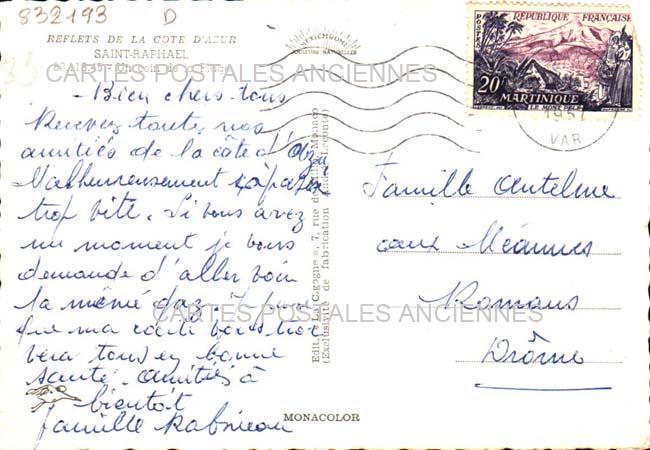 832193 D
REFLETS DE LA COTE D'AZUR
SAINT-RAPHAEL
CARTES POSTALES ANCIENNES
Bien chers tous
Recevez toutes nos
amitiés de la côte d'Azur
Malheureusement sa passe
trop vite. Si vous avez
un moment je vous
demande d'aller voir
la mémé
que ma carte vous trou
vera tous en bonne
santé. amitiés à
bientôt
famille
Edit. « La Cigogne », 7, rue
(Exclusivité de fabrication
Monaco
MONACOLOR
CARTES POSTALES ANCIENNES
REPUBLIQUE FRANÇAISE
POSTES
20F
MARTINIQUE
1957
VAR
Famille Antelme
aux Méannes
Romans
Drôme